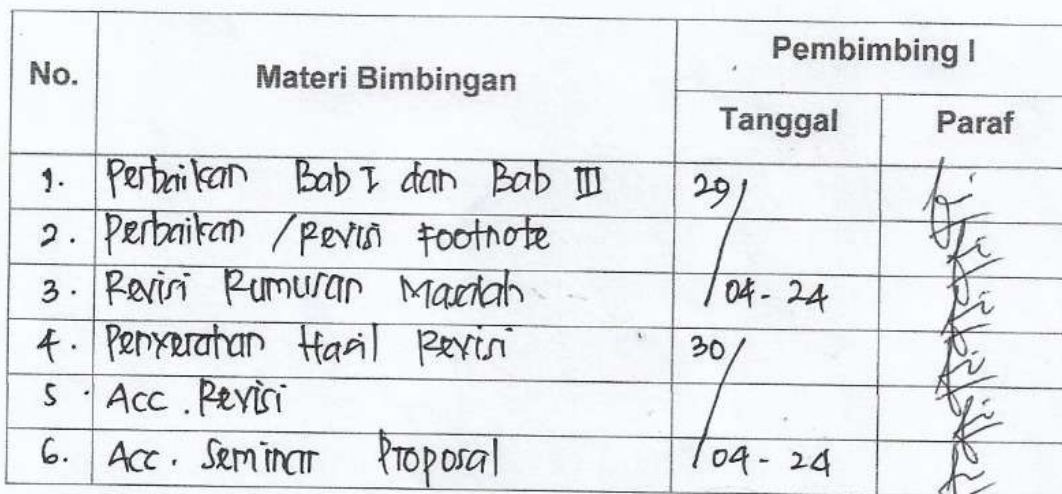 No. Materi Bimbingan Pembimbing I
Tanggal Paraf
1. Perbaikan Bab I dan Bab III 29/
2. Perbaikan / Revisi Footnote
3. Revisi Rumusan Masalah 04-24
4. Penyerahan Hasil Revisi 30/
5. Acc. Revisi
6. Acc. Seminar Proposal 04-24